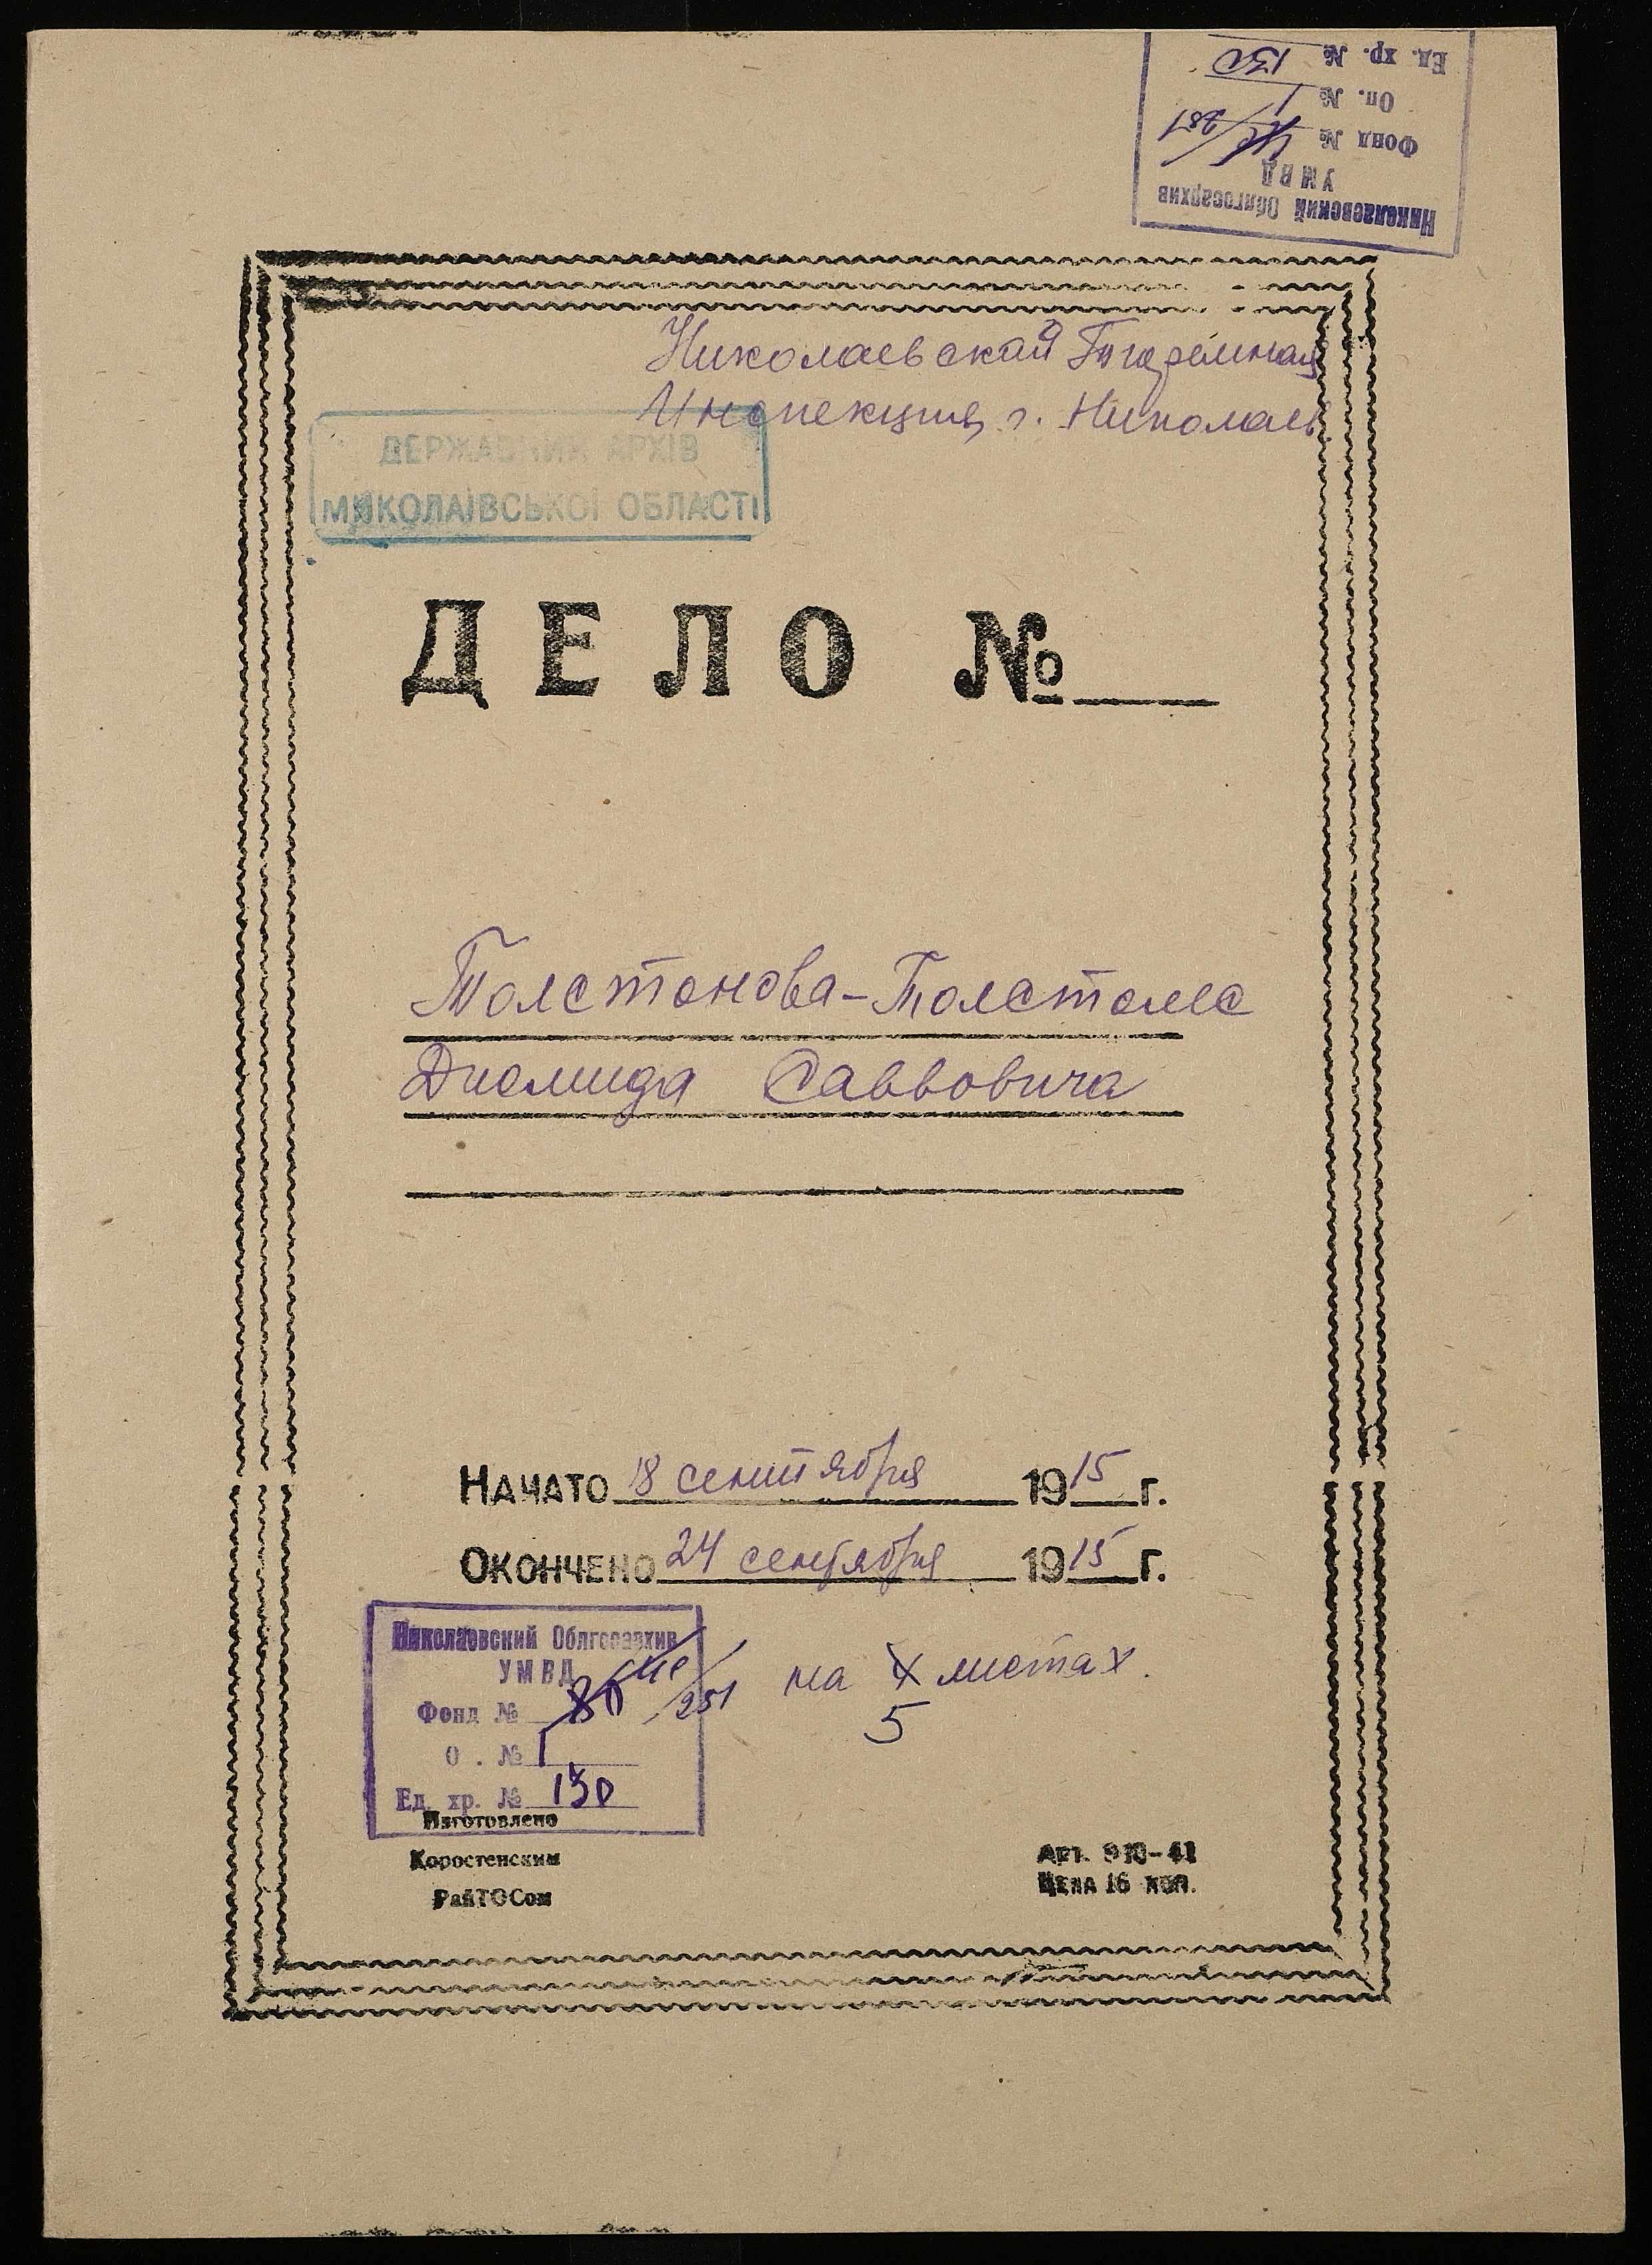 Николаевский Облгосархив
УМВД
Фонд № /281
Оп. № 1
Ед. хр. № 130
Николаевская Тюремная
Инспекция, г. Николаев.
ДЕРЖАВНИЙ АРХІВ
МИКОЛАЇВСЬКОЇ ОБЛАСТІ
ДЕЛО №
Толстонова-Толстого
Диомида Саввовича
НАЧАТО 18 сентября 1915 г.
ОКОНЧЕНО 24 сентября 1915 г.
Николаевский Облгосархив
УМВД
Фонд №
О . № 1
Ед. хр. № 130
на 4 листах.
5
Изготовлено
Коростенским
РайТОСом
Арт. 910-41
ЦЕНА 16 КОП.